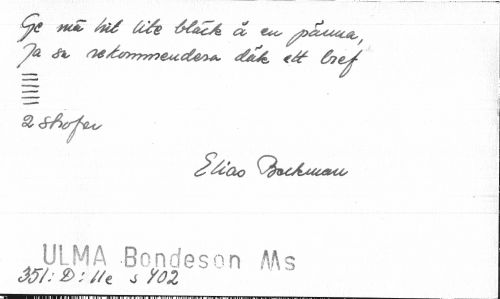 Ge mä hit lite bläck å en pänna,
Ja sa rekommendera däk ett bref
2 strofer
Elias Backman
ULMA Bondeson Ms
351:D:11e s 402